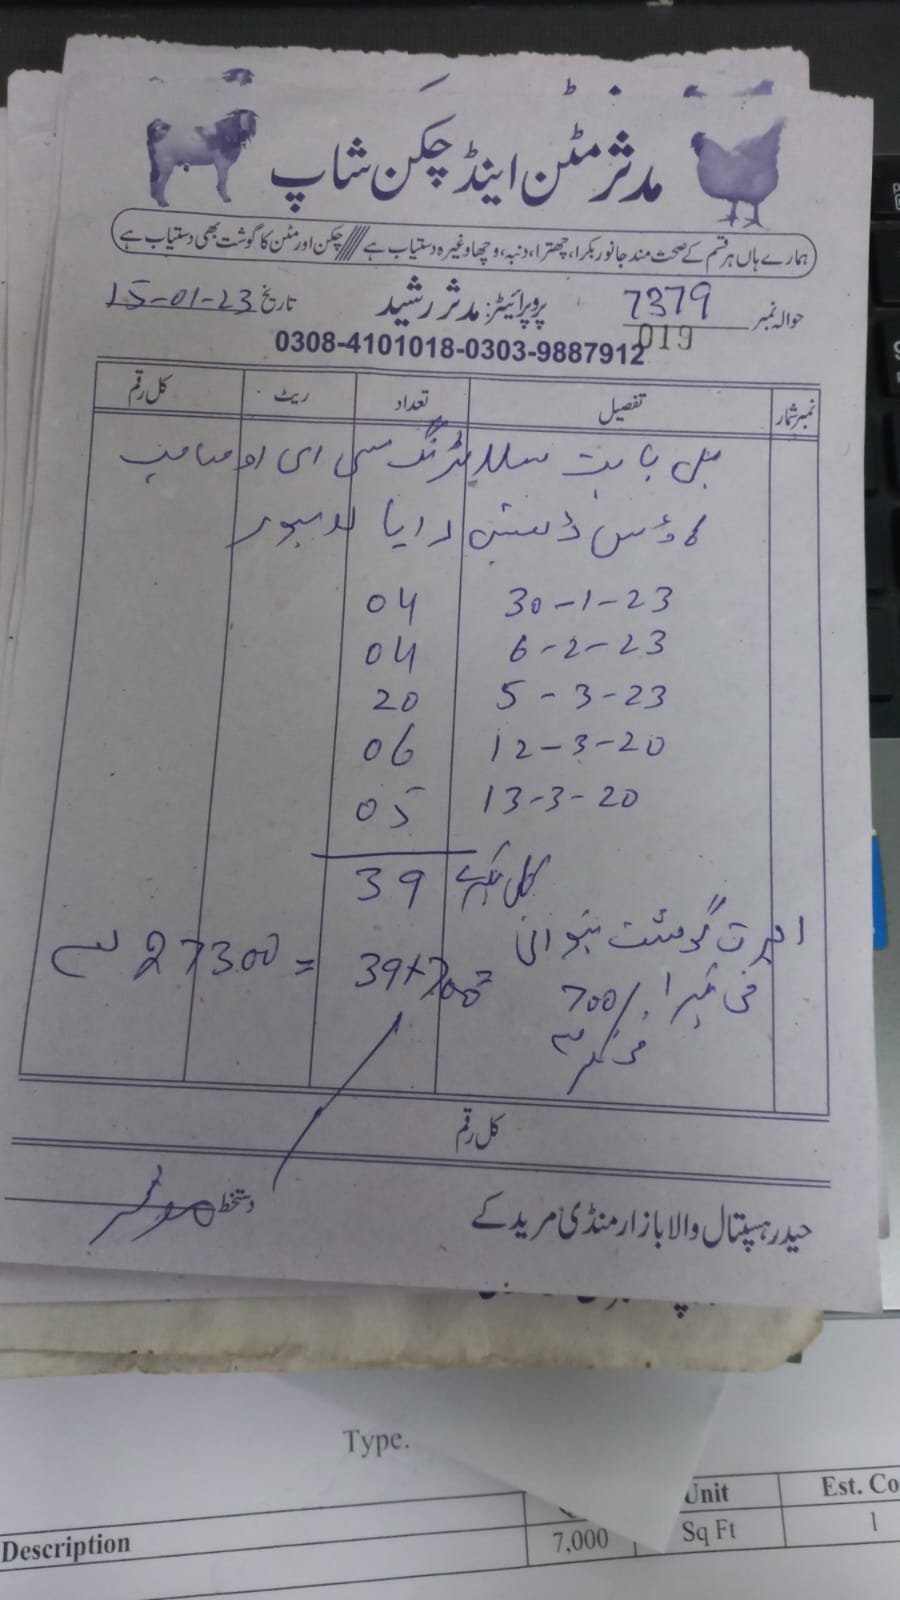 مدثر مٹن اینڈ چکن شاپ
ہمارے ہاں ہر قسم کے صحت مند جانور بکرا، چھترا، دنبہ، وچھا وغیرہ دستیاب ہے //// چکن اور مٹن کا گوشت بھی دستیاب ہے
حوالہ نمبر 7379 پروپرائیٹر: مدثر رشید تاریخ 15-01-23
019
0308-4101018-0303-9887912
نمبر شمار تفصیل تعداد ریٹ کل رقم
بل بابت سلاٹرنگ سی ای او صاحب
ہاؤس ڈیفنس رایا لاہور
30-1-23 04
6-2-23 04
5-3-23 20
12-3-20 06
13-3-20 05
کل بکرے 39
اجرت گوشت بنوائی
فی بکرا 700/. 39+700 = 27300
کل رقم
دستخط
حیدر ہسپتال والا بازار منڈی مریدکے
Type.
Unit Est. Co
Description 7,000 Sq Ft 1